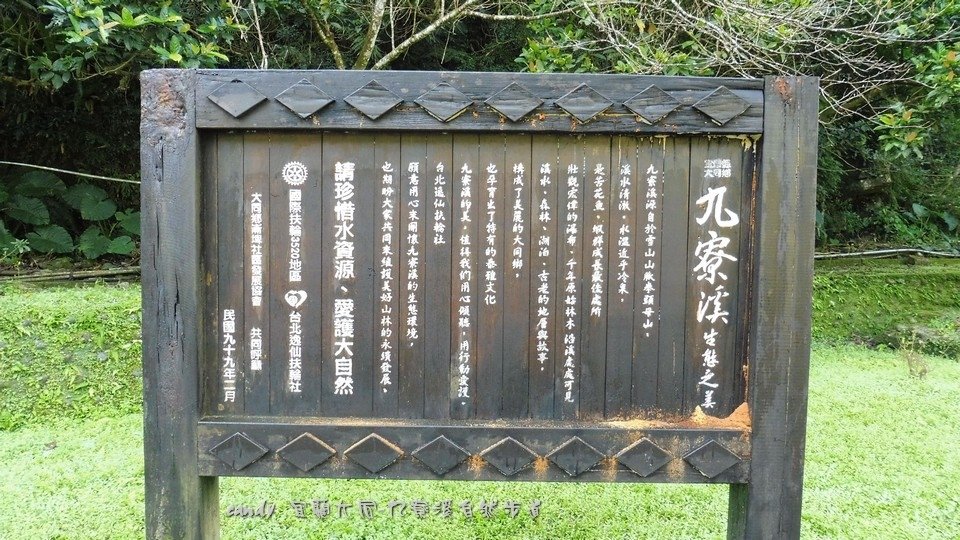 宜蘭縣
大同鄉
九寮溪生態之美
九寮溪源自於雪山山脈拳頭母山。
溪水清澈，水溫近于冷泉，
是苦花魚、蝦群成長最佳處所
壯觀宏偉的瀑布、千年原始林木沿溪處處可見
溪水、森林、湖泊、古老的地層與故事，
構成了美麗的大同鄉。
也孕育出了特有的泰雅文化
九寮溪的美，值得我們用心傾聽，用行動愛護。
台北逸仙扶輪社
願意用心來關懷九寮溪的生態環境，
也期盼大家共同來維護美好山林的永續發展。
請珍惜水資源、愛護大自然
國際扶輪3520地區 台北逸仙扶輪社
大同鄉崙埤社區發展協會 共同呼籲
民國九十九年二月
candy. 宜蘭大同 九寮溪自然步道